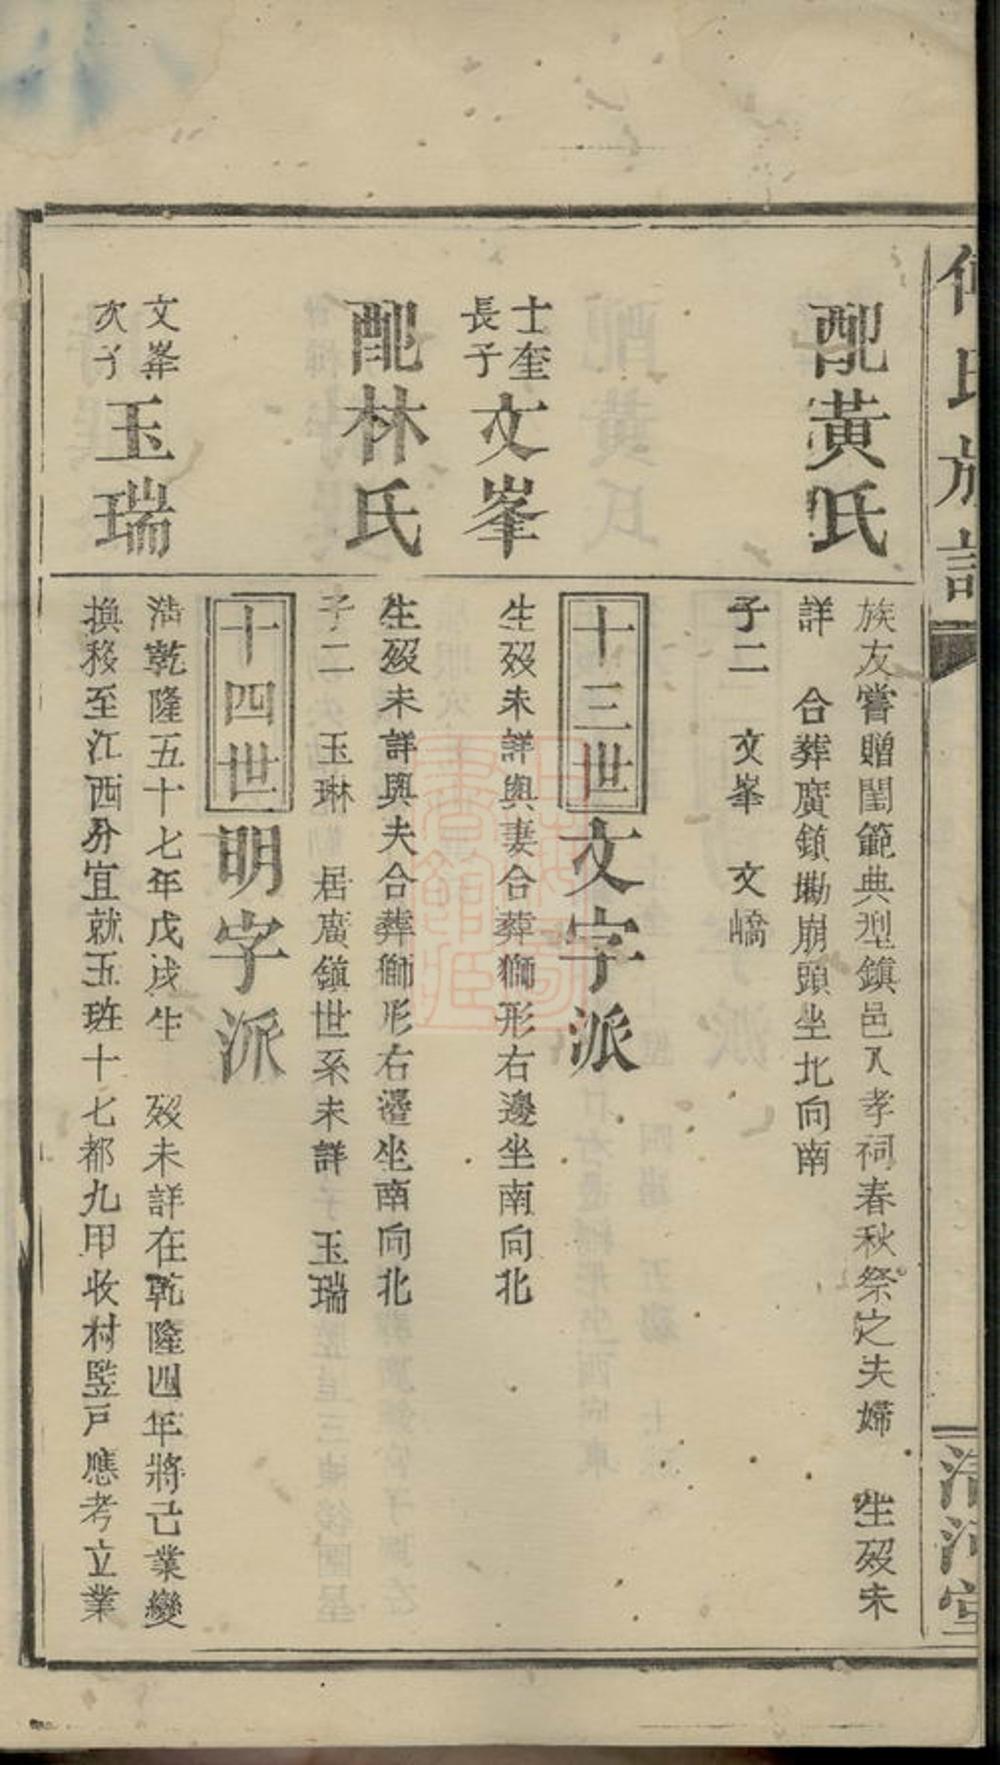 氏族譜
清河堂
配黃氏
族友嘗贈閨範典型鎮邑入孝祠春秋祭之夫婦 生歿未
詳 合葬廣鎮墈崩頭坐北向南
子二 文峯 文嶠
十三世文字派
士奎
長子
文峯
生歿未詳與妻合葬獅形右邊坐南向北
配林氏
生歿未詳與夫合葬獅形右邊坐南向北
子二 玉琳 居廣鎮世系未詳子 玉瑞
十四世明字派
文峯
次子
玉瑞
清乾隆五十七年戊戌生 歿未詳在乾隆四年將己業變
換移至江西分宜就五班十七都九甲收村監戶應考立業